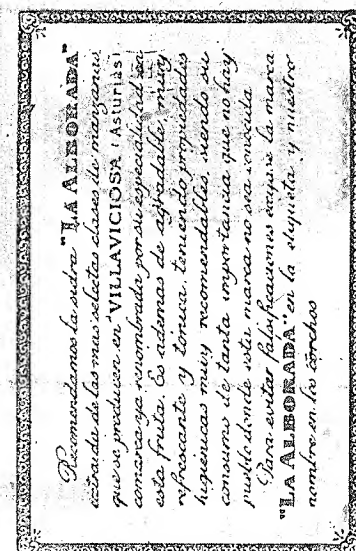 Recomendamos la sidra "LA ALBORADA"
extraida de las mas selectas clases de manzanas
que se producen en VILLAVICIOSA (Asturias)
comarca ya renombrada por su especialidad en
esta fruta. Es ademas de agradable, muy
refrescante y tonica, teniendo propiedades
higienicas muy recomendables, siendo su
consumo de tanta importancia que no hay
pueblo donde esta marca no sea conocida.
Para evitar falsificaciones exijase la marca
"LA ALBORADA" en la etiqueta y nuestro
nombre en los corchos